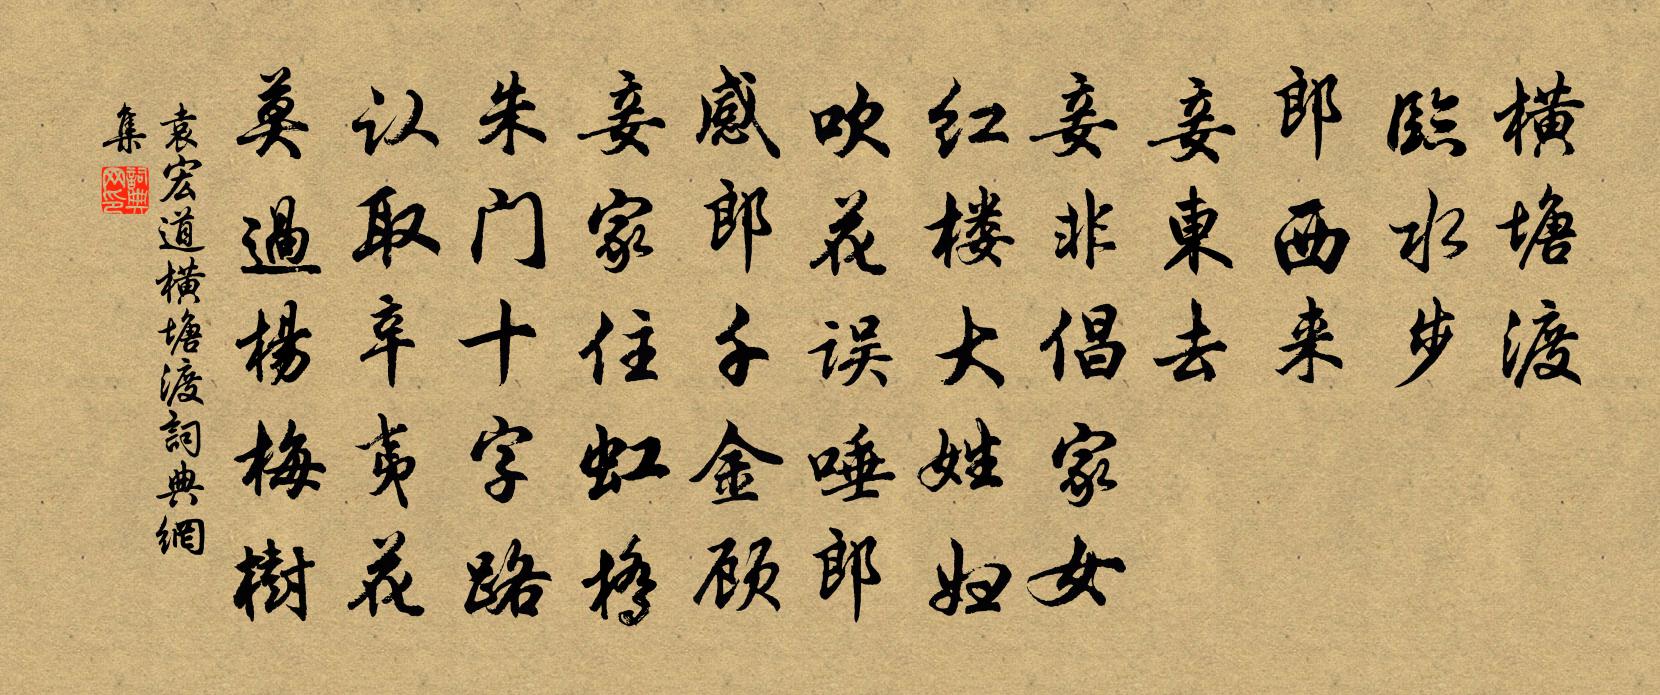 横塘渡
臨水步
郎西来
妾東去
妾非倡家女
红楼大姓妇
吹花误唾郎
感郎千金顾
妾家住虹橋
朱门十字路
认取辛夷花
莫過楊梅樹
袁宏道橫塘渡詞典網
集
詞典网印